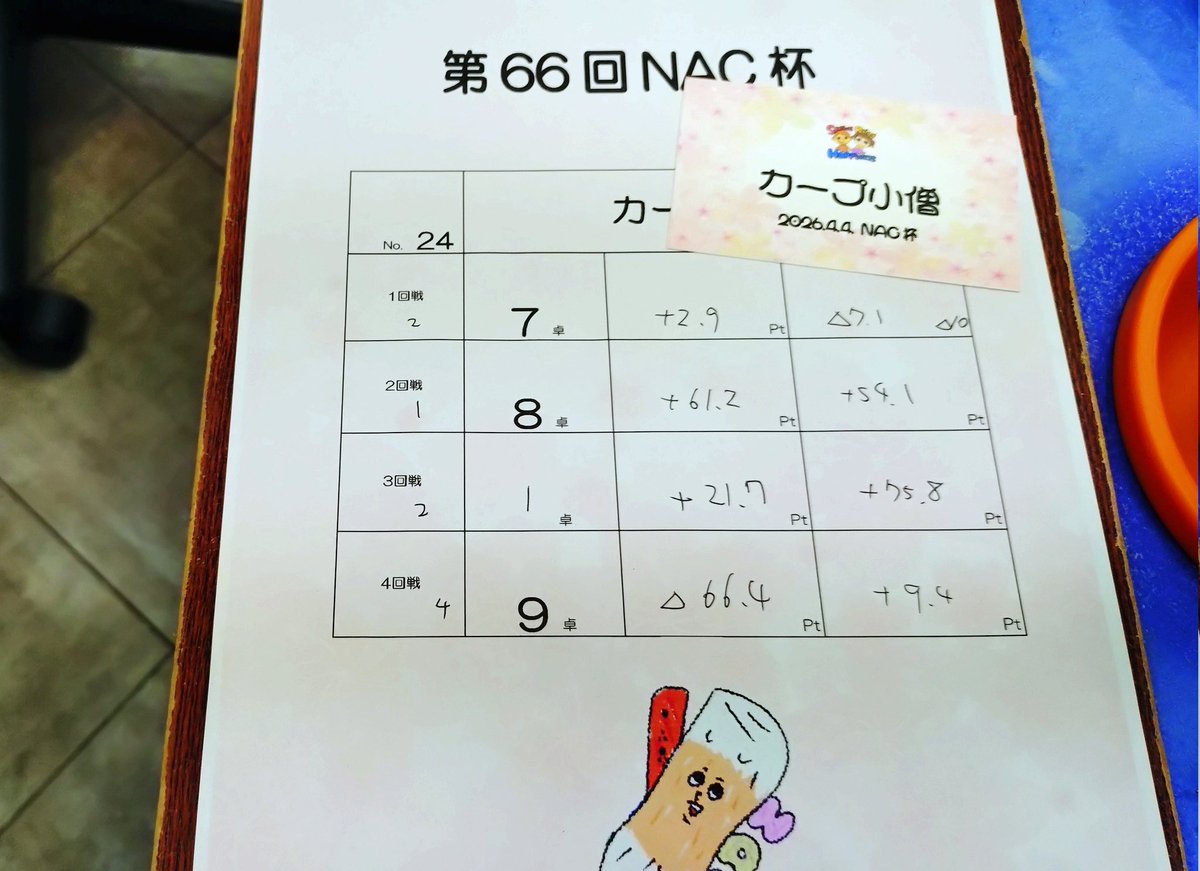 第66回NAC杯
カープ小僧
2026.4.4. NAC杯
No. 24
カー
1回戦
2
7卓
+2.9 Pt
△7.1 △10
2回戦
1
8卓
+61.2 Pt
+54.1 Pt
3回戦
2
1卓
+21.7 Pt
+75.8 Pt
4回戦
4
9卓
△66.4 Pt
+9.4 Pt